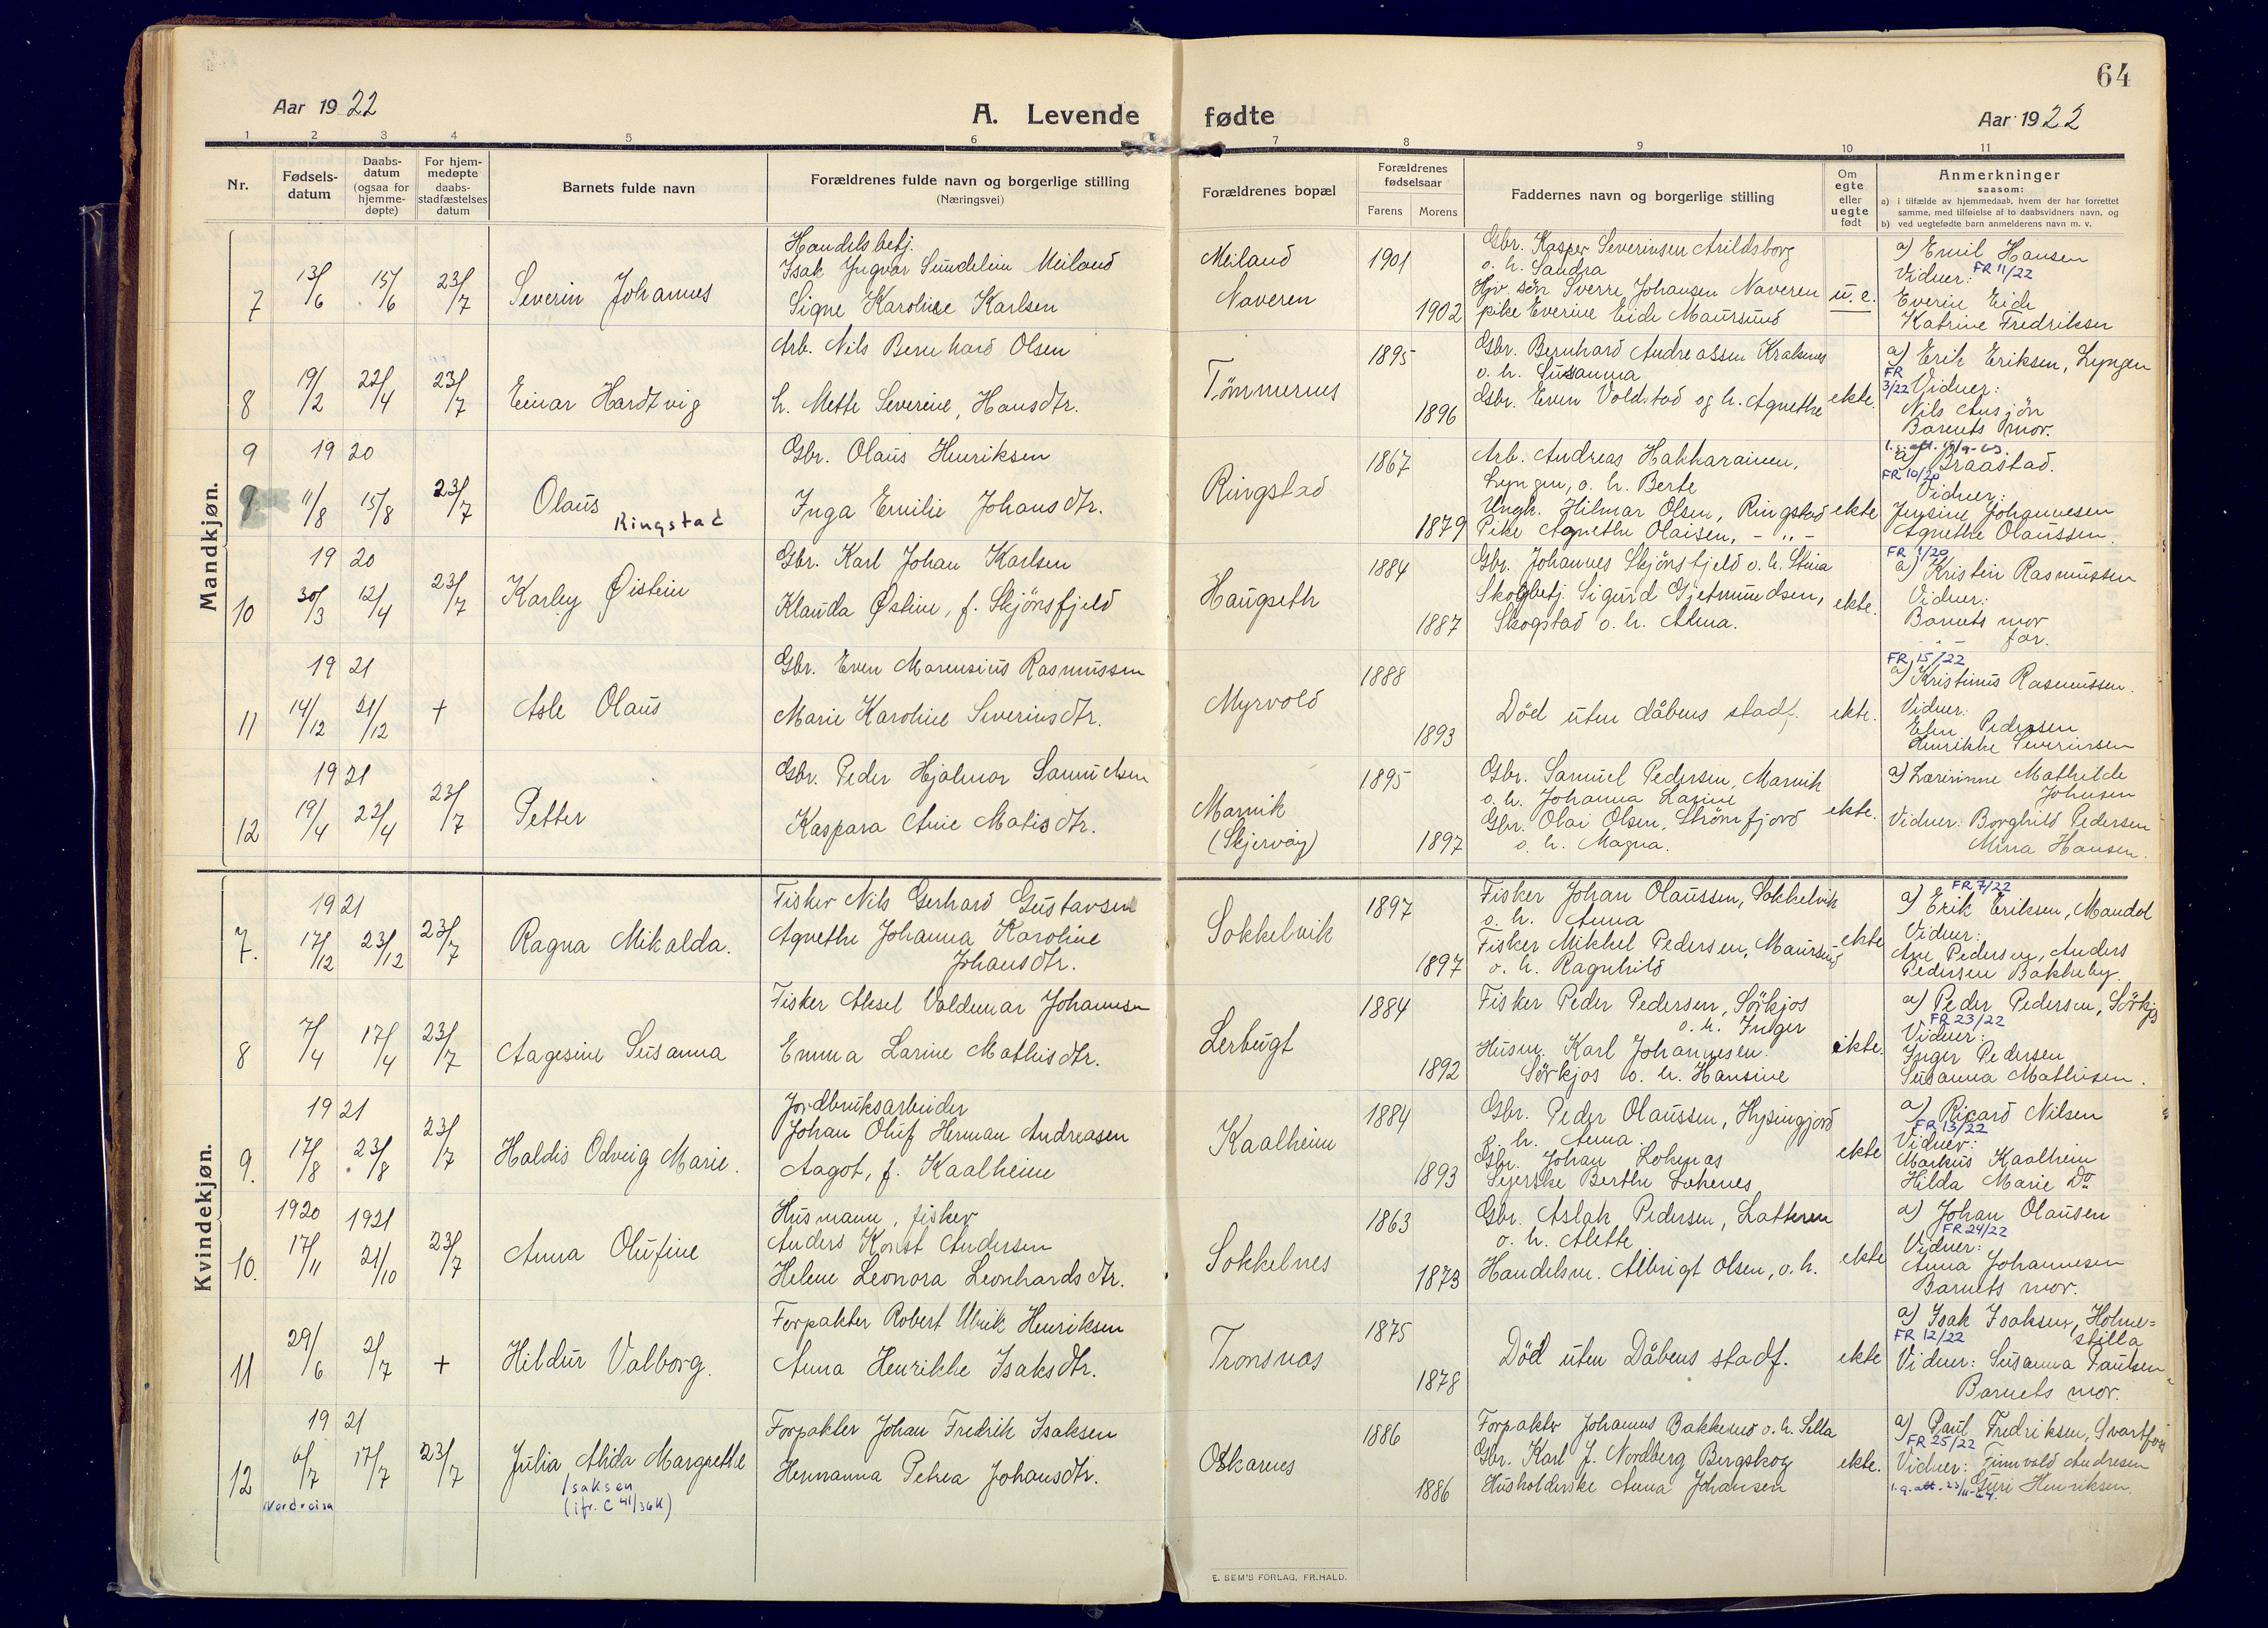 64
Aar 1922
A. Levende fødte
Aar 1922
1 2 3 4 5 6 7 8 9 10 11
Nr.
Fødsels-
datum
Daabs-
datum
(ogsaa for
hjemme-
døpte)
For hjem-
medøpte
daabs-
stadfæstelses
datum
Barnets fulde navn
Forældrenes fulde navn og borgerlige stilling
(Næringsvei)
Forældrenes bopæl
Forældrenes
fødselsaar
Farens Morens
Faddernes navn og borgerlige stilling
Om
egte
eller
uegte
født
Anmerkninger
saasom:
a) i tilfælde av hjemmedaab, hvem der har forrettet
samme, med tilføielse af to daabsvidners navn, og
b) ved uegtefødte barn anmelderens navn m. v.
Mandkjøn.
7
13/6
15/6
23/7
Severin Johannes
Handelsbetj.
Isak Yngvar Sundelin Meiland
Signe Karoline Karlsen
Meiland
Naveren
1901
1902
Gbr. Kasper Severinsen Arildsborg
o. h. Sandra
Gbr. søn Sverre Johansen Naveren
pike Everine Eide Maursund
u. e.
a) Emil Hansen
Vidner: FR 11/22
Everin Eide
Katrine Fredriksen
8
19/2
22/4
23/7
Einar Hardtvig
Arb. Nils Bernhard Olsen
h. Mette Severine, Hansdtr.
Tömmernes
1895
1896
Gbr. Bernhard Andreassen Kraknes
o. h. Susanna
Gbr. Even Voldstad og h. Agnethe
ekte.
a) Erik Eriksen, Lyngen
FR
3/22 Vidner:
Nils Ansjön
Barnets mor.
9 1920
9.
11/8
15/8
23/7
Olaus
Ringstad
Gbr. Olaus Henriksen
Inga Emilie Johansdtr.
Ringstad
1867
1879
Arb. Andreas Hakkarainen,
Lyngen, o. h. Berte
Ungk. Hilmar Olsen, Ringstad
Pike Agnethe Olaisen, - " -
ekte
a) Graastad.
FR 10/20
Vidner:
Jensine Johannesen
Agnethe Olaussen.
1920
10
30/3
12/4
23/7
Karley Øistein
Gbr. Karl Johan Karlsen
Klauda Østine, f. Skjönsfjeld
Haugseth
1884
1887
Gbr. Johannes Skjönsfjeld o. h. Stina
Skogbetj. Sigurd Gjetmundsen,
Skogstad o. h. Alma.
ekte.
FR 1/20
a) Kristin Rasmussen
Vidner:
Barnets mor
- " - far.
1921
11
14/12
21/12
+
Asle Olaus
Gbr. Even Marensius Rasmussen
Marie Karoline Severinsdtr.
Myrvold
1888
1893
Död uten dåbens stadf.
ekte.
FR 15/22
a) Kristinus Rasmussen.
Vidner:
Elen Pedersen
Henrikke Severinsen
1921
12
19/4
22/4
23/7
Petter
Gbr. Peder Hjalmar Samuelsen
Kaspara Anie Matisdtr.
Marnik
(Skjervøy)
1895
1897
Gbr. Samuel Pedersen, Marnik
o. h. Johanna Larine
Gbr. Olai Olsen, Strömfjord
o. h. Magna.
ekte.
a) Larinne Mathilde
Johnsen
Vidner: Borghild Pedersen
Minna Hansen.
Kvindekjøn.
1921
7.
17/12
23/12
23/7
Ragna Mikalda.
Fisker Nils Gerhard Gustavsen
Agnethe Johanna Karoline
Johansdtr.
Sokkelvik
1897
1897
Fisker Johan Olaussen, Sokkelvik
o. h. Anna
Fisker Mikkel Pedersen, Maursund
o. h. Ragnhild
ekte
FR 7/22
a) Erik Eriksen, Mandal
Vidner:
Ane Pedersen, Anders
Pedersen Bakkeby.
8
7/4
17/4
23/7
Aagesine Susanna
Fisker Aksel Valdemar Johansen
Emma Larine Mathisdtr.
Lerbugt
1884
1892
Fisker Peder Pedersen, Sörkjos
o. h. Inger
Husm. Karl Johannesen.
Sörkjos o. h. Hansine
ekte.
a) Peder Pedersen, Sörkjos
FR 23/22
Vidner:
Inger Pedersen
Susanna Mathisen.
1921
9.
17/8
23/8
23/7
Haldis Odveig Marie.
Jordbruksarbeider
Johan Oluf Herman Andreasen
Aagot, f. Kaalheim
Kaalheim
1884
1893
Gbr. Peder Olaussen, Hysingjord
o. h. Anna.
Gbr. Johan Lokenas
Syerske Berthe Lokenes
ekte
a) Ricard Nilsen
FR 13/22
Vidner:
Markus Kaalhein
Hilda Marie Do
1920 1921
10.
17/11
21/10
23/7
Anna Olufine
Husmann, fisker
Anders Konst Andersen
Helene Leonora Leonhardsdtr.
Sokkelnes
1863
1873
Gbr. Aslak Pedersen, Latteren
o. h. Alette
Handelsm. Albrigt Olsen, o. h.
ekte
a) Johan Olausen
FR 24/22
Vidner:
Anna Johannesen
Barnets mor.
11
29/6
2/7
+
Hildur Valborg.
Forpakter Robert Ulrik Henriksen
Anna Henrikke Isaksdtr.
Tronsnas
1875
1878
Död uten Dåbens stadf.
ekte
a) Isak Isaksen, Holme=
FR 12/22 stilla
Vidner: Susanna Paulsen
Barnets mor.
1921
12
6/7
17/7
23/7
Nordreisa
Julia Alida Margrethe
Isaksen
(jfr. C 41/36K)
Forpakter Johan Fredrik Isaksen
Hermanna Petrea Johansdtr.
Oskarnes
1886
1886
Forpakter Johannes Bakkemo o. h. Sella
Gbr. Karl J. Nordberg Bergskog
Husholderske Anna Johansen
ekte.
a) Paul Fredriksen, Svartfoss
FR 25/22
Vidner: Finnvold Andresen
Guri Henriksen.
E. SEM'S FORLAG, FR.HALD.